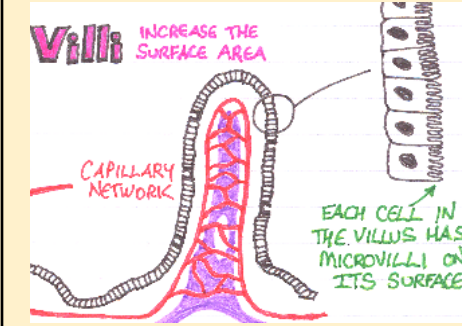 Villi INCREASE THE
SURFACE AREA
CAPILLARY
NETWORK
EACH CELL IN
THE VILLUS HAS
MICROVILLI ON
ITS SURFACE